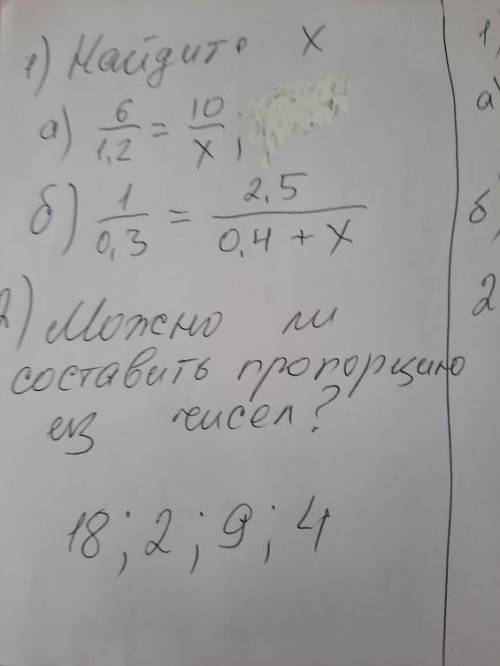 1) Найдите x
а) 6/1,2 = 10/x;
б) 1/0,3 = 2,5/(0,4 + x)
2) Можно ли
составить пропорцию
из чисел?
18; 2; 9; 4
1,
а)
б)
2